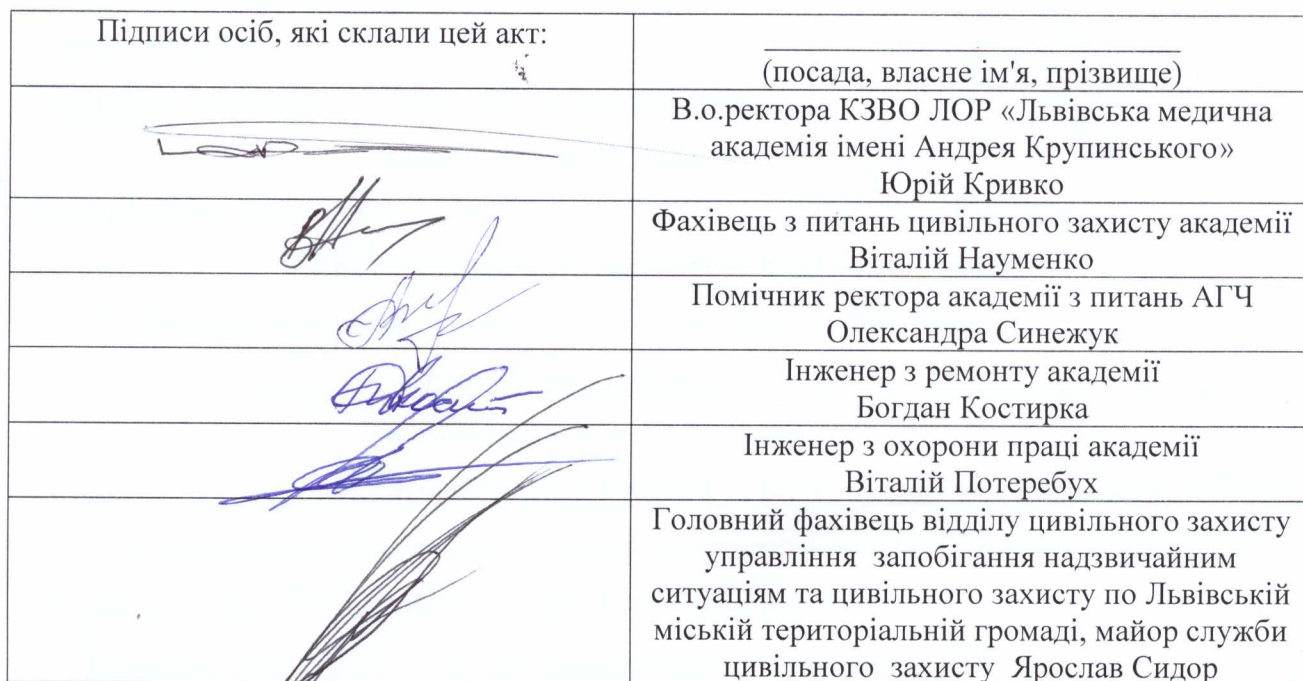 Підписи осіб, які склали цей акт:
(посада, власне ім'я, прізвище)
В.о.ректора КЗВО ЛОР «Львівська медична
академія імені Андрея Крупинського»
Юрій Кривко
Фахівець з питань цивільного захисту академії
Віталій Науменко
Помічник ректора академії з питань АГЧ
Олександра Синежук
Інженер з ремонту академії
Богдан Костирка
Інженер з охорони праці академії
Віталій Потеребух
Головний фахівець відділу цивільного захисту
управління запобігання надзвичайним
ситуаціям та цивільного захисту по Львівській
міській територіальній громаді, майор служби
цивільного захисту Ярослав Сидор